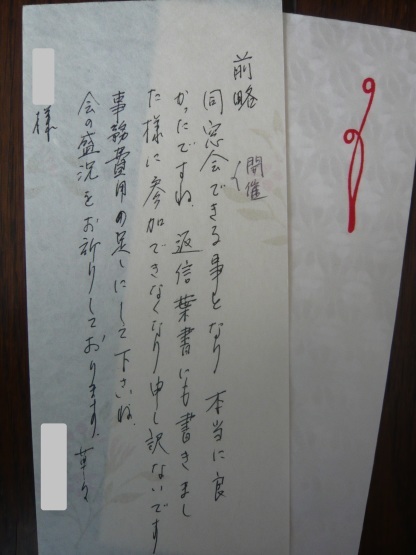 前略
開催
同窓会できる事となり 本当に良
かったですね。返信葉書にも書きまし
た様に参加できなくなり申し訳ないです
事務費用の足しにして下さいね。
会の盛況をお祈りしております。草々
様